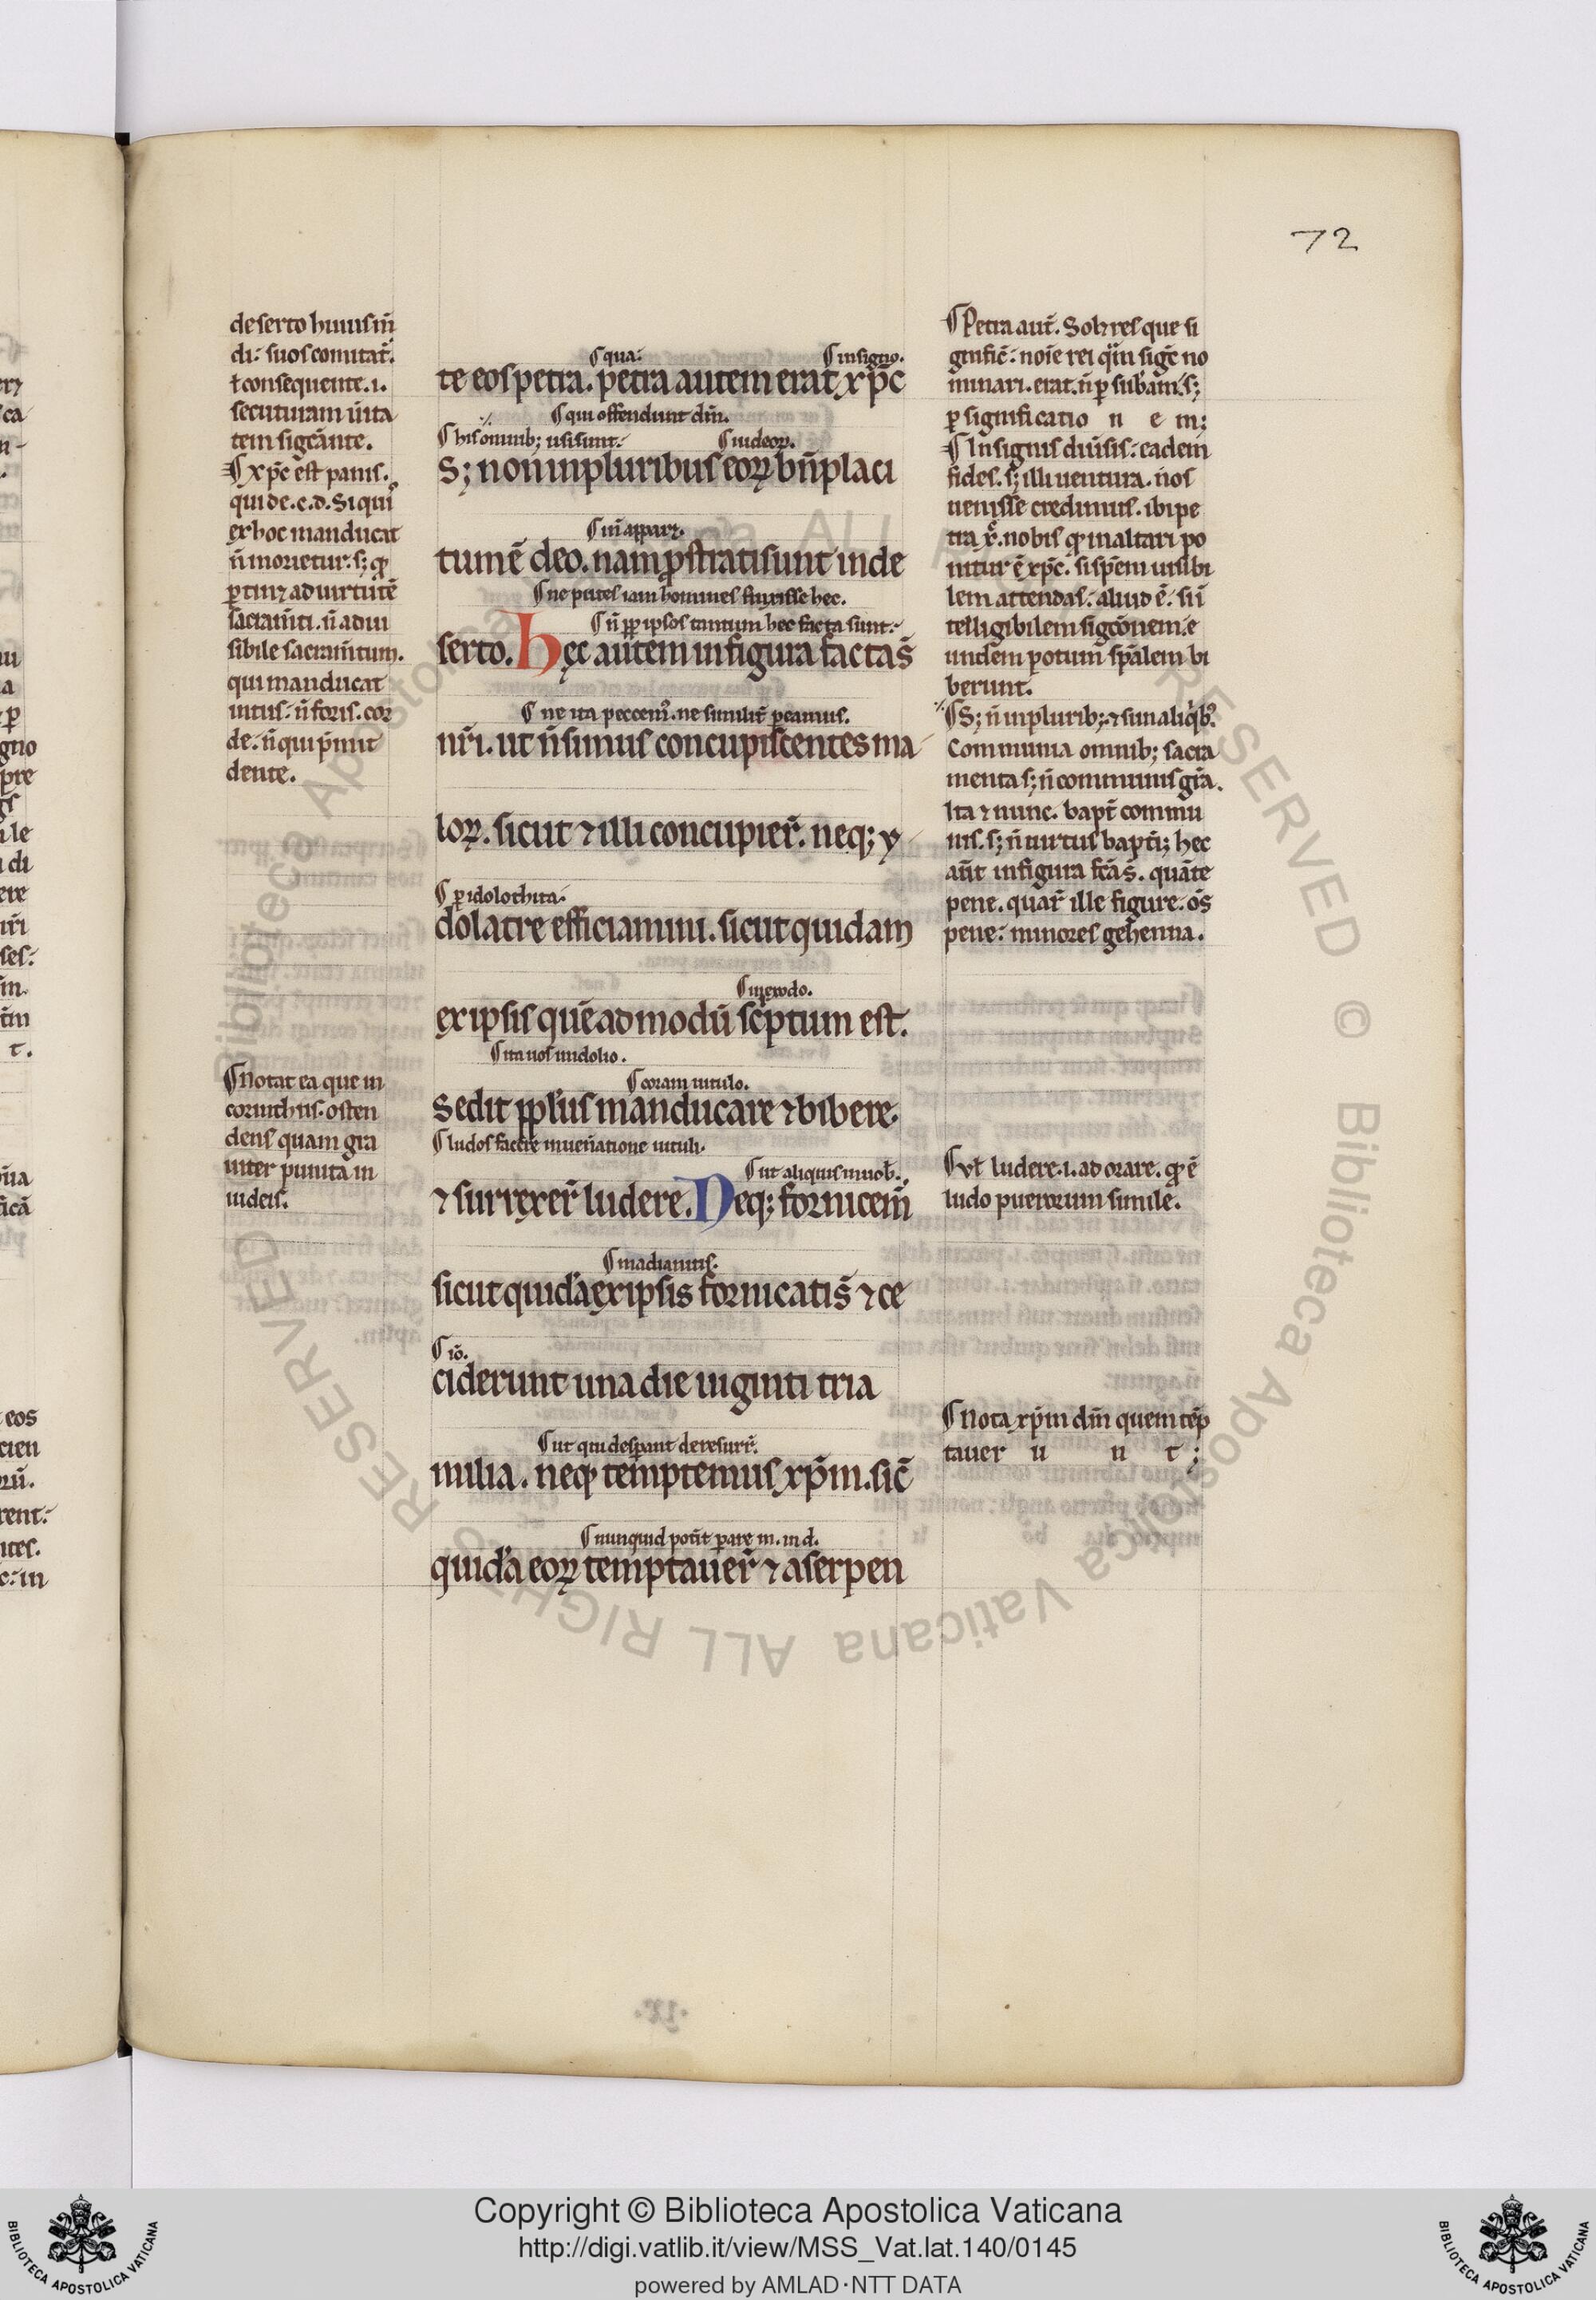 72
deserto huius m̄
di: suos comitat̄.
ł consequente .i.
secuturam ūita
tem sigc̄ante.
¶ xp̄c est panis.
qui de .c.d. Si quis
ex hoc manducat
n̄ morietur: s; qđ
ꝑtinꝫ ad uirtutē
sacram̄ti. n̄ ad ui
sibile sacram̄tum.
qui manducat
intus: n̄ foris. cor
de: n̄ qui p̄mit
dente.
¶ Notat ea que in
corinthiis: osten
dens quam gra
uiter punita in
iudeis.
¶ qua:
¶ in signo.
te eos petra. petra autem erat xp̄c
¶ qui offendunt dm̄.
¶ his omnib; usi sunt:
¶ iudeoꝝ.
S; non in pluribus eoꝝ bn̄placi
¶ ūi apparꝫ.
tum ē deo. nam ꝓstrati sunt in de
¶ ne putes iam homines finxisse hec.
¶ n̄ ꝓp ipsos tantum hec facta sunt:
serto. Hęc autem in figura facta s̄
¶ ne ita peccem᷒. ne similit̄ ꝑeamus.
nr̄i. ut n̄ simus concupiscentes ma
loꝝ. sicut ⁊ illi concupier̄. neq; y
¶ ꝑ idolothita:
dolatre efficiamini. sicut quidam
¶ in exodo.
ex ipsis quēadmodū sc̄ptum est.
¶ ita uos in idolio.
¶ coram uitulo.
Sedit ppl'us manducare ⁊ bibere.
¶ ludos facere in ueneratione uituli.
¶ ut aliquis in uob̄.
⁊ surrexer̄ ludere. Neq; fornicem̄
¶ madianitis.
sicut quidā ex ipsis fornicati s̄ ⁊ ce
¶ iō.
ciderunt una die uiginti tria
¶ ut qui desꝑant de resurr̄.
milia. neq; temptemus xp̄m. sic̄
¶ nunquid pot̄it parare m. in d.
quidā eoꝝ temptauer̄ ⁊ a serpen
¶ Petra aut̄. Solꝫ res que si
gnific̄: noīe rei quā sigc̄ no
minari. erat. n̄ ꝑ subam̄. s;
ꝑ significatio n e m;
¶ In signis diūsis: eadem
fides. s; illi uentura. nos
uenisse credimus. ibi pe
tra xc̄. nobis qđ in altari po
nitur ē xp̄c. si spēm uisibi
lem attendas: aliud ē: si ī
telligibilem sigc̄onem: e
undem potum sp̄alem bi
berunt.
¶ S; n̄ in plurib; ⁊ sun aliq'b᷒.
Communia omnib; sacra
menta s; n̄ communis gr̄a.
Ita ⁊ nunc. bapt̄ commu
nis. s; n̄ uirtus bapt̄i; hec
aūt in figura fc̄a s̄. quāte
pene. quar̄ ille figure: om̄s
pene: minores gehenna.
¶ Vł ludere .i. adorare. qđ ē
ludo puerorum simile.
¶ Nota xp̄m dm̄ quem tēp
tauer u n t;
Copyright © Biblioteca Apostolica Vaticana
http://digi.vatlib.it/view/MSS_Vat.lat.140/0145
powered by AMLAD·NTT DATA